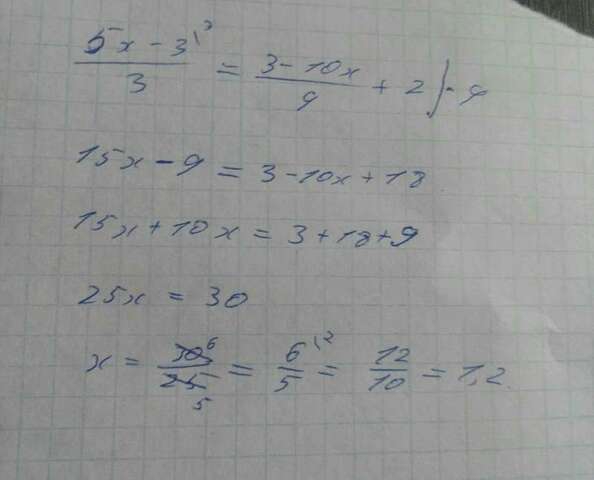 (5x - 3)/3 \3 = (3 - 10x)/9 + 2 ) · 9
15x - 9 = 3 - 10x + 18
15x + 10x = 3 + 18 + 9
25x = 30
x = 30/25 6/5 = 6/5 \2 = 12/10 = 1,2.